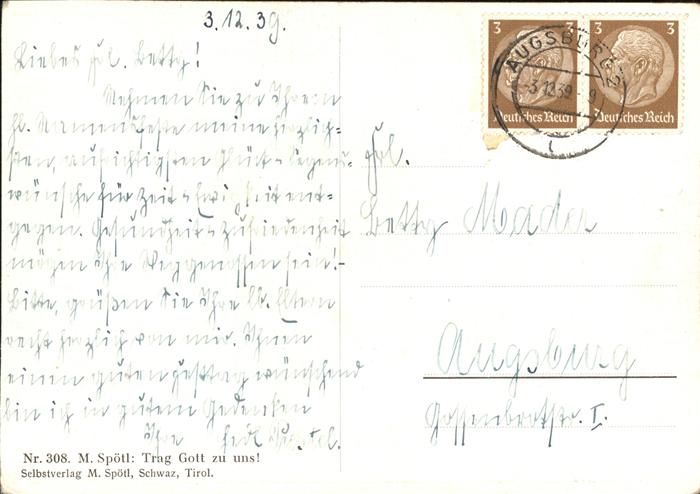 3.12.39.
Liebes Frl. Betty!
Nehmen Sie zu Ihrem
hl. Namensfeste meine herzlich-
sten, aufrichtigsten Glück- u. Segens-
wünsche für Zeit u. Ewigkeit ent-
gegen. Gesundheit u. Zufriedenheit
mögen Ihre Weggenossen sein!-
Bitte, grüßen Sie Ihre lb. Eltern
recht herzlich von mir. Ihnen
einen guten Festtag wünschend
bin ich in gutem Gedenken
Ihre
Nr. 308. M. Spötl: Trag Gott zu uns!
Selbstverlag M. Spötl, Schwaz, Tirol.
3 3
Deutsches Reich Deutsches Reich
AUGSBURG 2
-3.12.39
Frl.
Betty Mader
Augsburg
Gossenbrotstr. I.